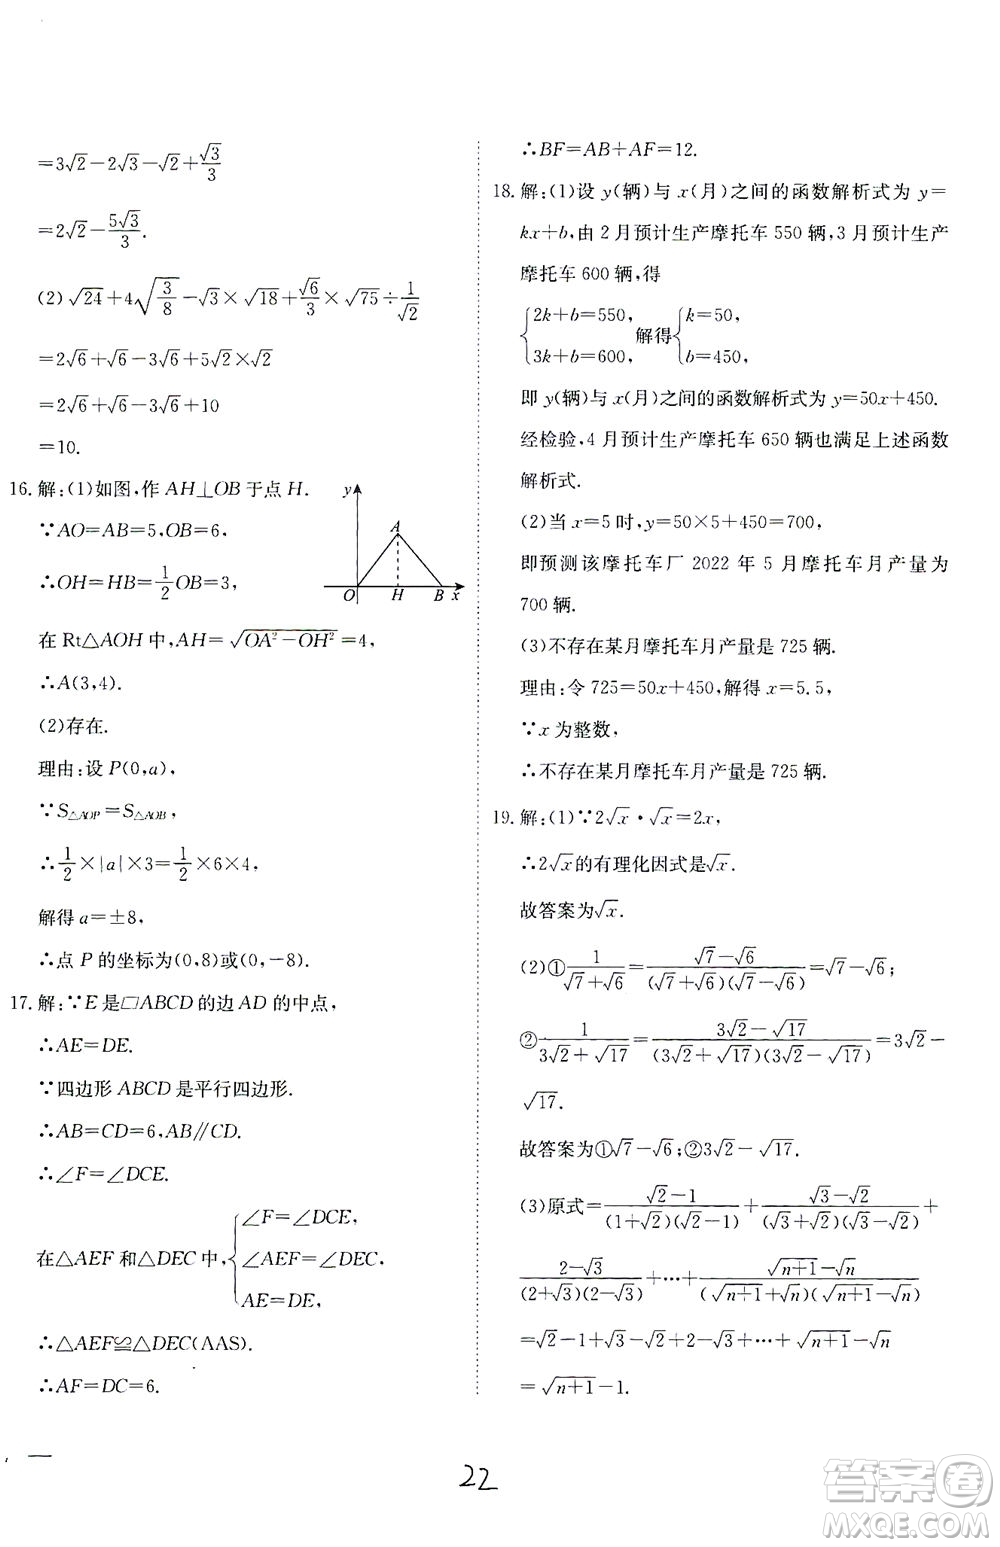 =3√2-2√3-√2+√3/3
=2√2-5√3/3.
(2)√24+4√(3/8)-√3×√18+√6/3×√75÷1/√2
=2√6+√6-3√6+5√2×√2
=2√6+√6-3√6+10
=10.
16.解:(1)如图,作 AH⊥OB于点 H.
∵AO=AB=5,OB=6,
∴OH=HB=1/2OB=3,
在 Rt△AOH 中,AH=√(OA²-OH²)=4,
∴A(3,4).
y
A
O H B x
(2)存在.
理由:设 P(0,a),
∵S△AOP=S△AOB,
∴1/2×|a|×3=1/2×6×4,
解得 a=±8,
∴点 P 的坐标为(0,8)或(0,-8).
17.解:∵E是▱ABCD的边 AD 的中点,
∴AE=DE.
∵四边形 ABCD 是平行四边形.
∴AB=CD=6,AB∥CD.
∴∠F=∠DCE.
在△AEF 和△DEC 中,{∠F=∠DCE,
∠AEF=∠DEC,
AE=DE,
∴△AEF≌△DEC(AAS).
∴AF=DC=6.
∴BF=AB+AF=12.
18.解:(1)设 y(辆)与 x(月)之间的函数解析式为 y=
kx+b,由 2 月预计生产摩托车 550 辆,3 月预计生产
摩托车 600 辆,得
{2k+b=550, 解得{k=50,
3k+b=600, b=450,
即 y(辆)与 x(月)之间的函数解析式为 y=50x+450.
经检验,4 月预计生产摩托车 650 辆也满足上述函数
解析式.
(2)当 x=5 时,y=50×5+450=700,
即预测该摩托车厂 2022 年 5 月摩托车月产量为
700 辆.
(3)不存在某月摩托车月产量是 725 辆.
理由:令 725=50x+450,解得 x=5.5,
∵x 为整数,
∴不存在某月摩托车月产量是 725 辆.
19.解:(1)∵2√x·√x=2x,
∴2√x的有理化因式是√x.
故答案为√x.
(2)①1/(√7+√6)=(√7-√6)/((√7+√6)(√7-√6))=√7-√6;
②1/(3√2+√17)=(3√2-√17)/((3√2+√17)(3√2-√17))=3√2-
√17.
故答案为①√7-√6;②3√2-√17.
(3)原式=(√2-1)/((1+√2)(√2-1))+(√3-√2)/((√3+√2)(√3-√2))+
(2-√3)/((2+√3)(2-√3))+…+(√(n+1)-√n)/((√(n+1)+√n)(√(n+1)-√n))
=√2-1+√3-√2+2-√3+…+√(n+1)-√n
=√(n+1)-1.
22
答案卷
MXQE.COM